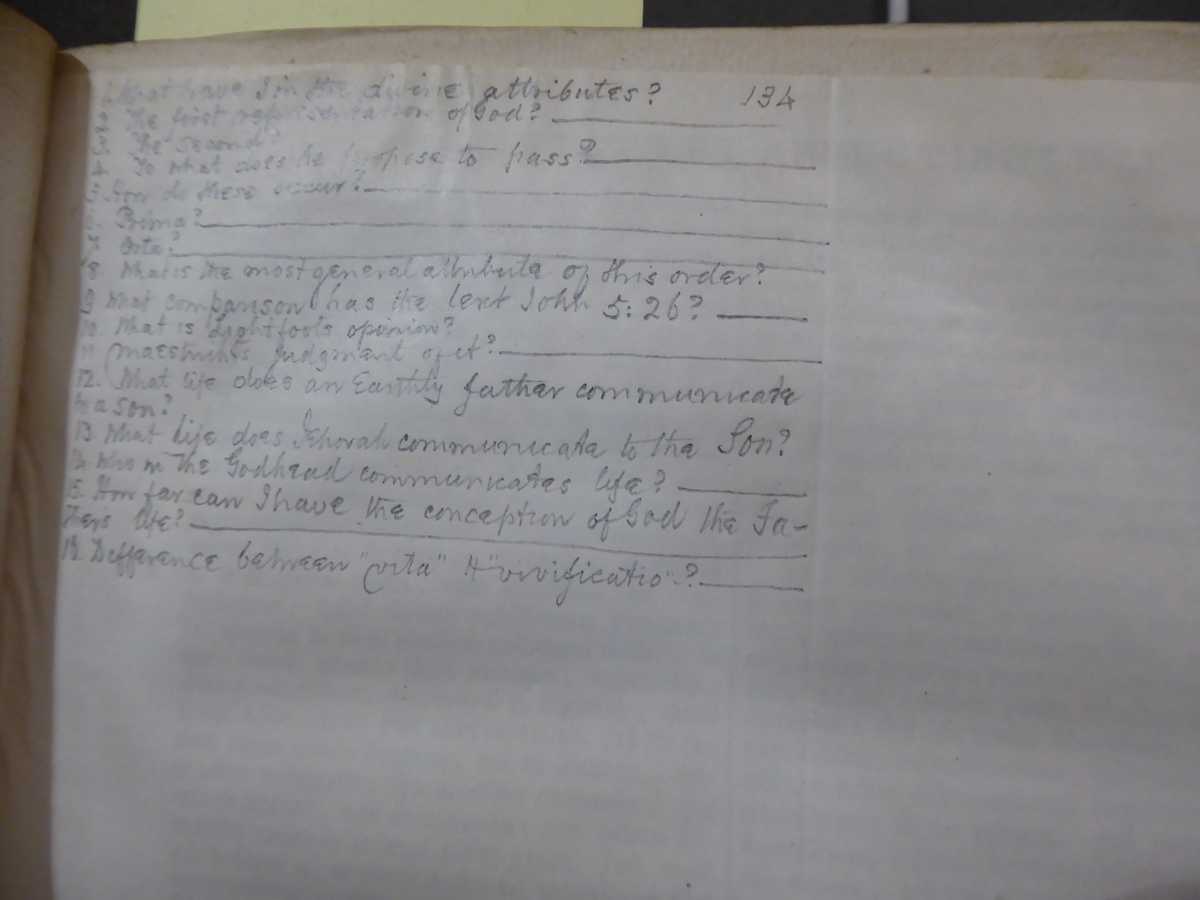 1. What have I in the divine attributes? 134
2. The first representation of God?
3. The second?
4. To what does he propose to pass?
5. How do these occur?
6. Prima?
7. Orta?
8. What is the most general attribute of this order?
9 What comparison has the text John 5:26?
10. What is Lightfoots opinion?
11 Maestrichts judgment of it?
12. What life does an Earthly father communicate
to a son?
13. What life does Jehovah communicate to the Son?
14. Who in the Godhead communicates life?
15. How far can I have the conception of God the Fa-
thers life?
Difference between "vita" & "vivificatio"?